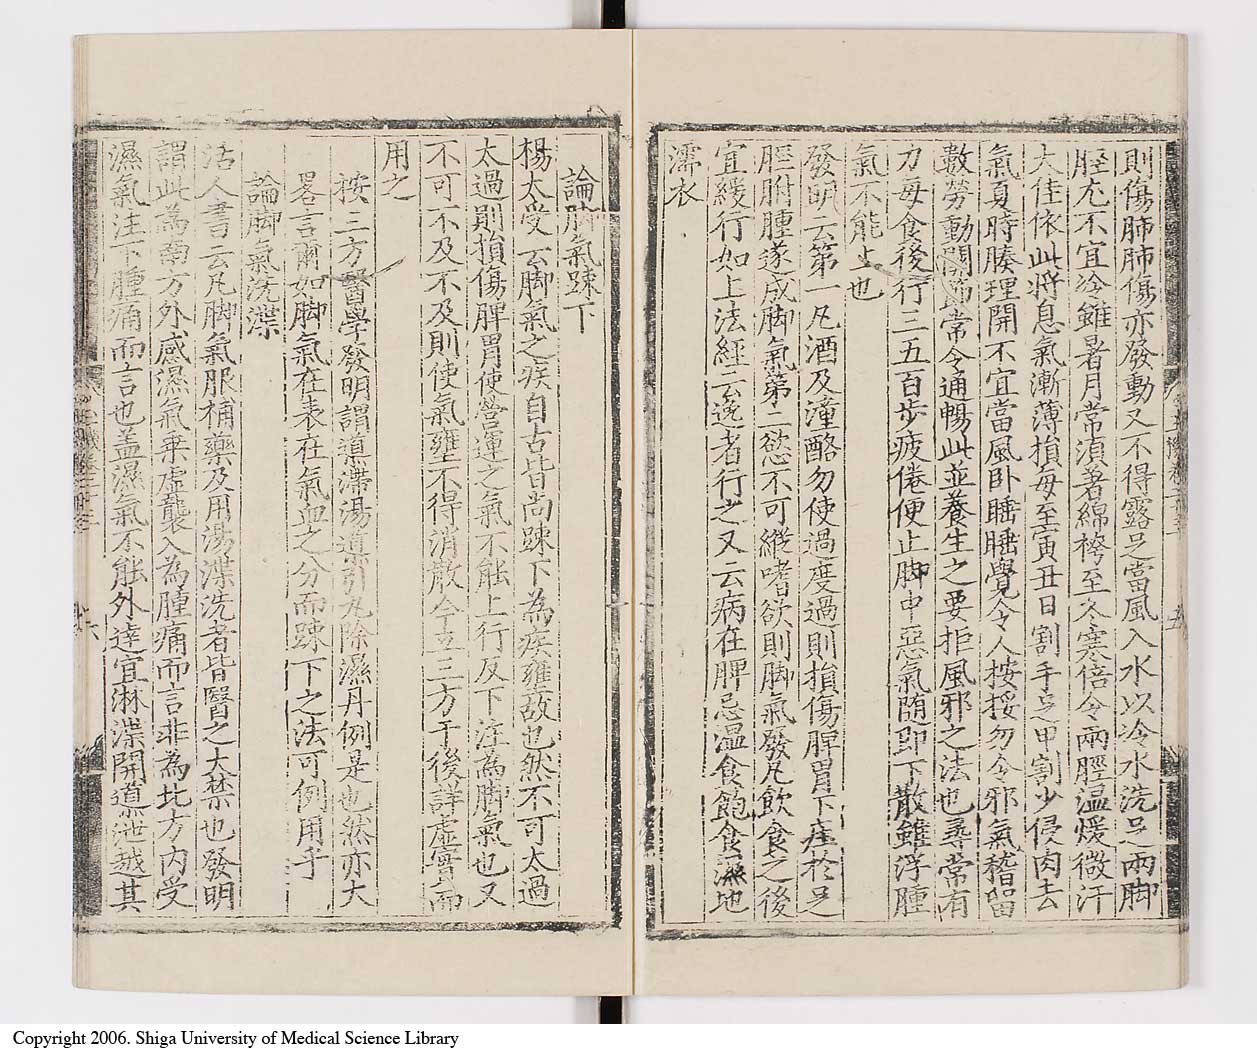 則傷肺肺傷亦發動又不得露足當風入水以冷水洗足兩脚
脛尤不宜冷雖暑月常湏著綿袴至冬寒倍令兩脛温煖微汗
大佳依此將息氣漸薄損每至寅丑日割手足甲割少侵肉去
氣夏時腠理開不宜當風卧睡睡覺令人桉挼勿令邪氣稽留
數勞動關節常令通暢此並養生之要拒風邪之法也尋常有
力每食後行三五百步疲倦便止脚中惡氣随即下散雖浮腫
氣不能上也
發明云第一凡酒及潼酪勿使過度過則損傷脾胃下注於足
脛胕腫遂成脚氣第二慾不可縱嗜欲則脚氣發凡飲食之後
宜緩行如上法經云逸者行之又云病在脾忌温食飽食濕地
濡衣
論脚氣踈下
楊太受云脚氣之疾自古皆尚踈下為疾壅故也然不可太過
太過則損傷脾胃使營運之氣不能上行反下注為脚氣也又
不可不及不及則使氣壅不得消散今立三方于後詳虛實而
用之
按三方醫學發明謂導滯湯導引丸除濕丹例是也然亦大
畧言爾如脚氣在表在氣血之分而踈下之法可例用乎
論脚氣洗渫
活人書云凡脚氣服補藥及用湯渫洗者皆醫之大禁也發明
謂此為南方外感濕氣乗虛襲入為腫痛而言非為北方内受
濕氣注下腫痛而言也盖濕氣不能外達宜淋渫開導泄越其
Copyright 2006. Shiga University of Medical Science Library